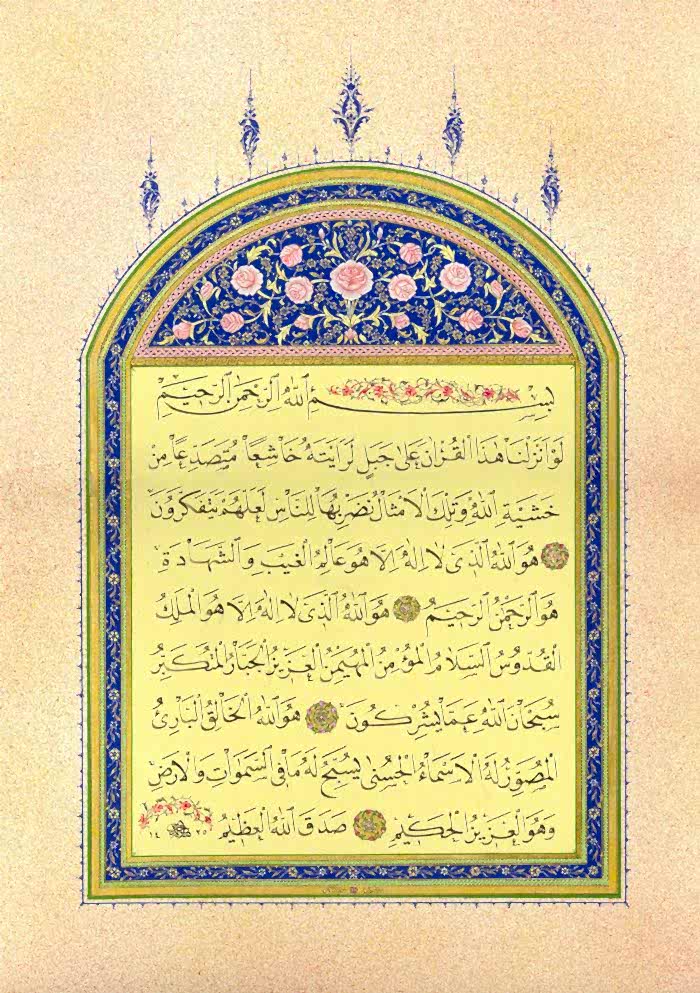 بِسْمِ اللهِ الرَّحْمٰنِ الرَّحِيمِ
لَوْ اَنْزَلْنَا هٰذَا الْقُرْاٰنَ عَلٰى جَبَلٍ لَرَاَيْتَهُ خَاشِعًا مُتَصَدِّعًا مِنْ
خَشْيَةِ اللهِ وَتِلْكَ الْاَمْثَالُ نَضْرِبُهَا لِلنَّاسِ لَعَلَّهُمْ يَتَفَكَّرُونَ
هُوَ اللهُ الَّذِى لَا اِلٰهَ اِلَّا هُوَ عَالِمُ الْغَيْبِ وَالشَّهَادَةِ
هُوَ الرَّحْمٰنُ الرَّحِيمُ هُوَ اللهُ الَّذِى لَا اِلٰهَ اِلَّا هُوَ الْمَلِكُ
الْقُدُّوسُ السَّلَامُ الْمُؤْمِنُ الْمُهَيْمِنُ الْعَزِيزُ الْجَبَّارُ الْمُتَكَبِّرُ
سُبْحَانَ اللهِ عَمَّا يُشْرِكُونَ هُوَ اللهُ الْخَالِقُ الْبَارِئُ
الْمُصَوِّرُ لَهُ الْاَسْمَاءُ الْحُسْنٰى يُسَبِّحُ لَهُ مَا فِى السَّمٰوَاتِ وَالْاَرْضِ
وَهُوَ الْعَزِيزُ الْحَكِيمُ صَدَقَ اللهُ الْعَظِيمُ